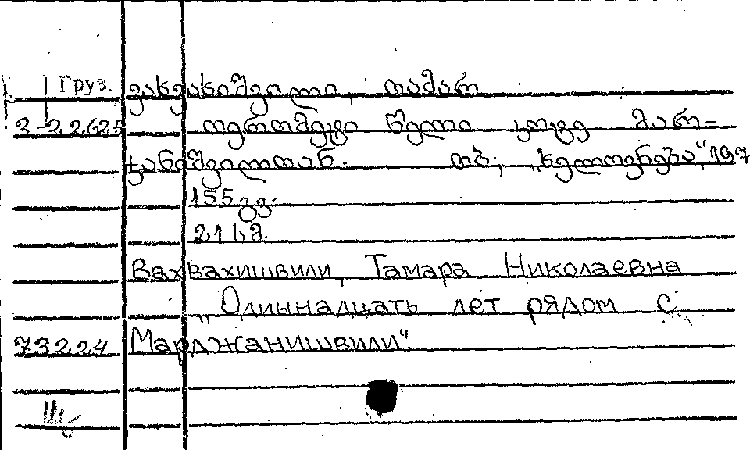 Груз. ვახვახიშვილი, თამარ
3-22625 თერთმეტი წელი კოტე მარ-
ჯანიშვილთან. თბ., „ხელოვნება“, 197
155 გვ.
Вахвахишвили, Тамара Николаевна
„Одиннадцать лет рядом с
73224 Марджанишвили“